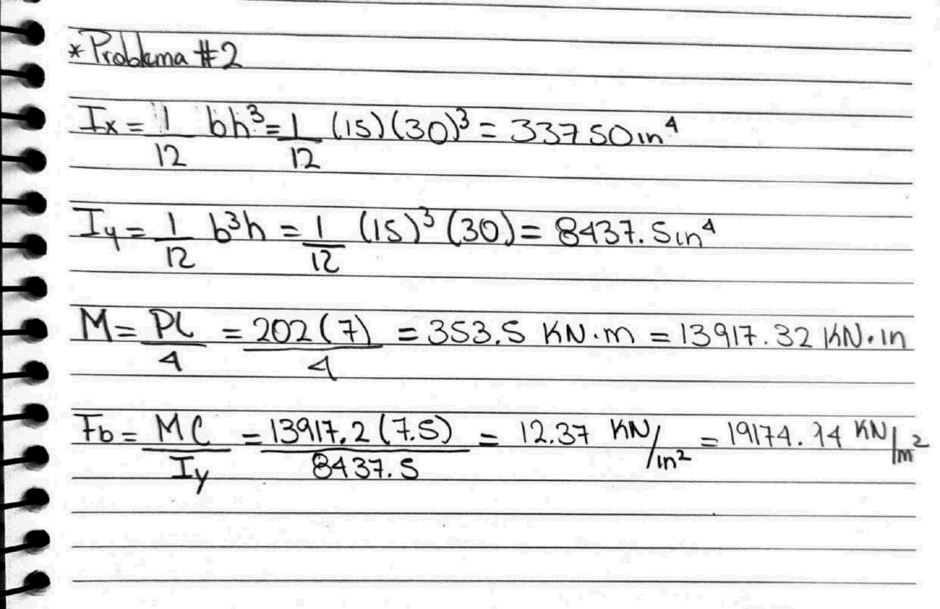 * Problema #2
Ix = 1/12 bh³ = 1/12 (15)(30)³ = 33750 in⁴
Iy = 1/12 b³h = 1/12 (15)³(30) = 8437.5 in⁴
M = PL/4 = 202(7)/4 = 353.5 KN·m = 13917.32 KN·in
Fb = MC/Iy = 13917.2(7.5)/8437.5 = 12.37 KN/in² = 19174.94 KN/m²